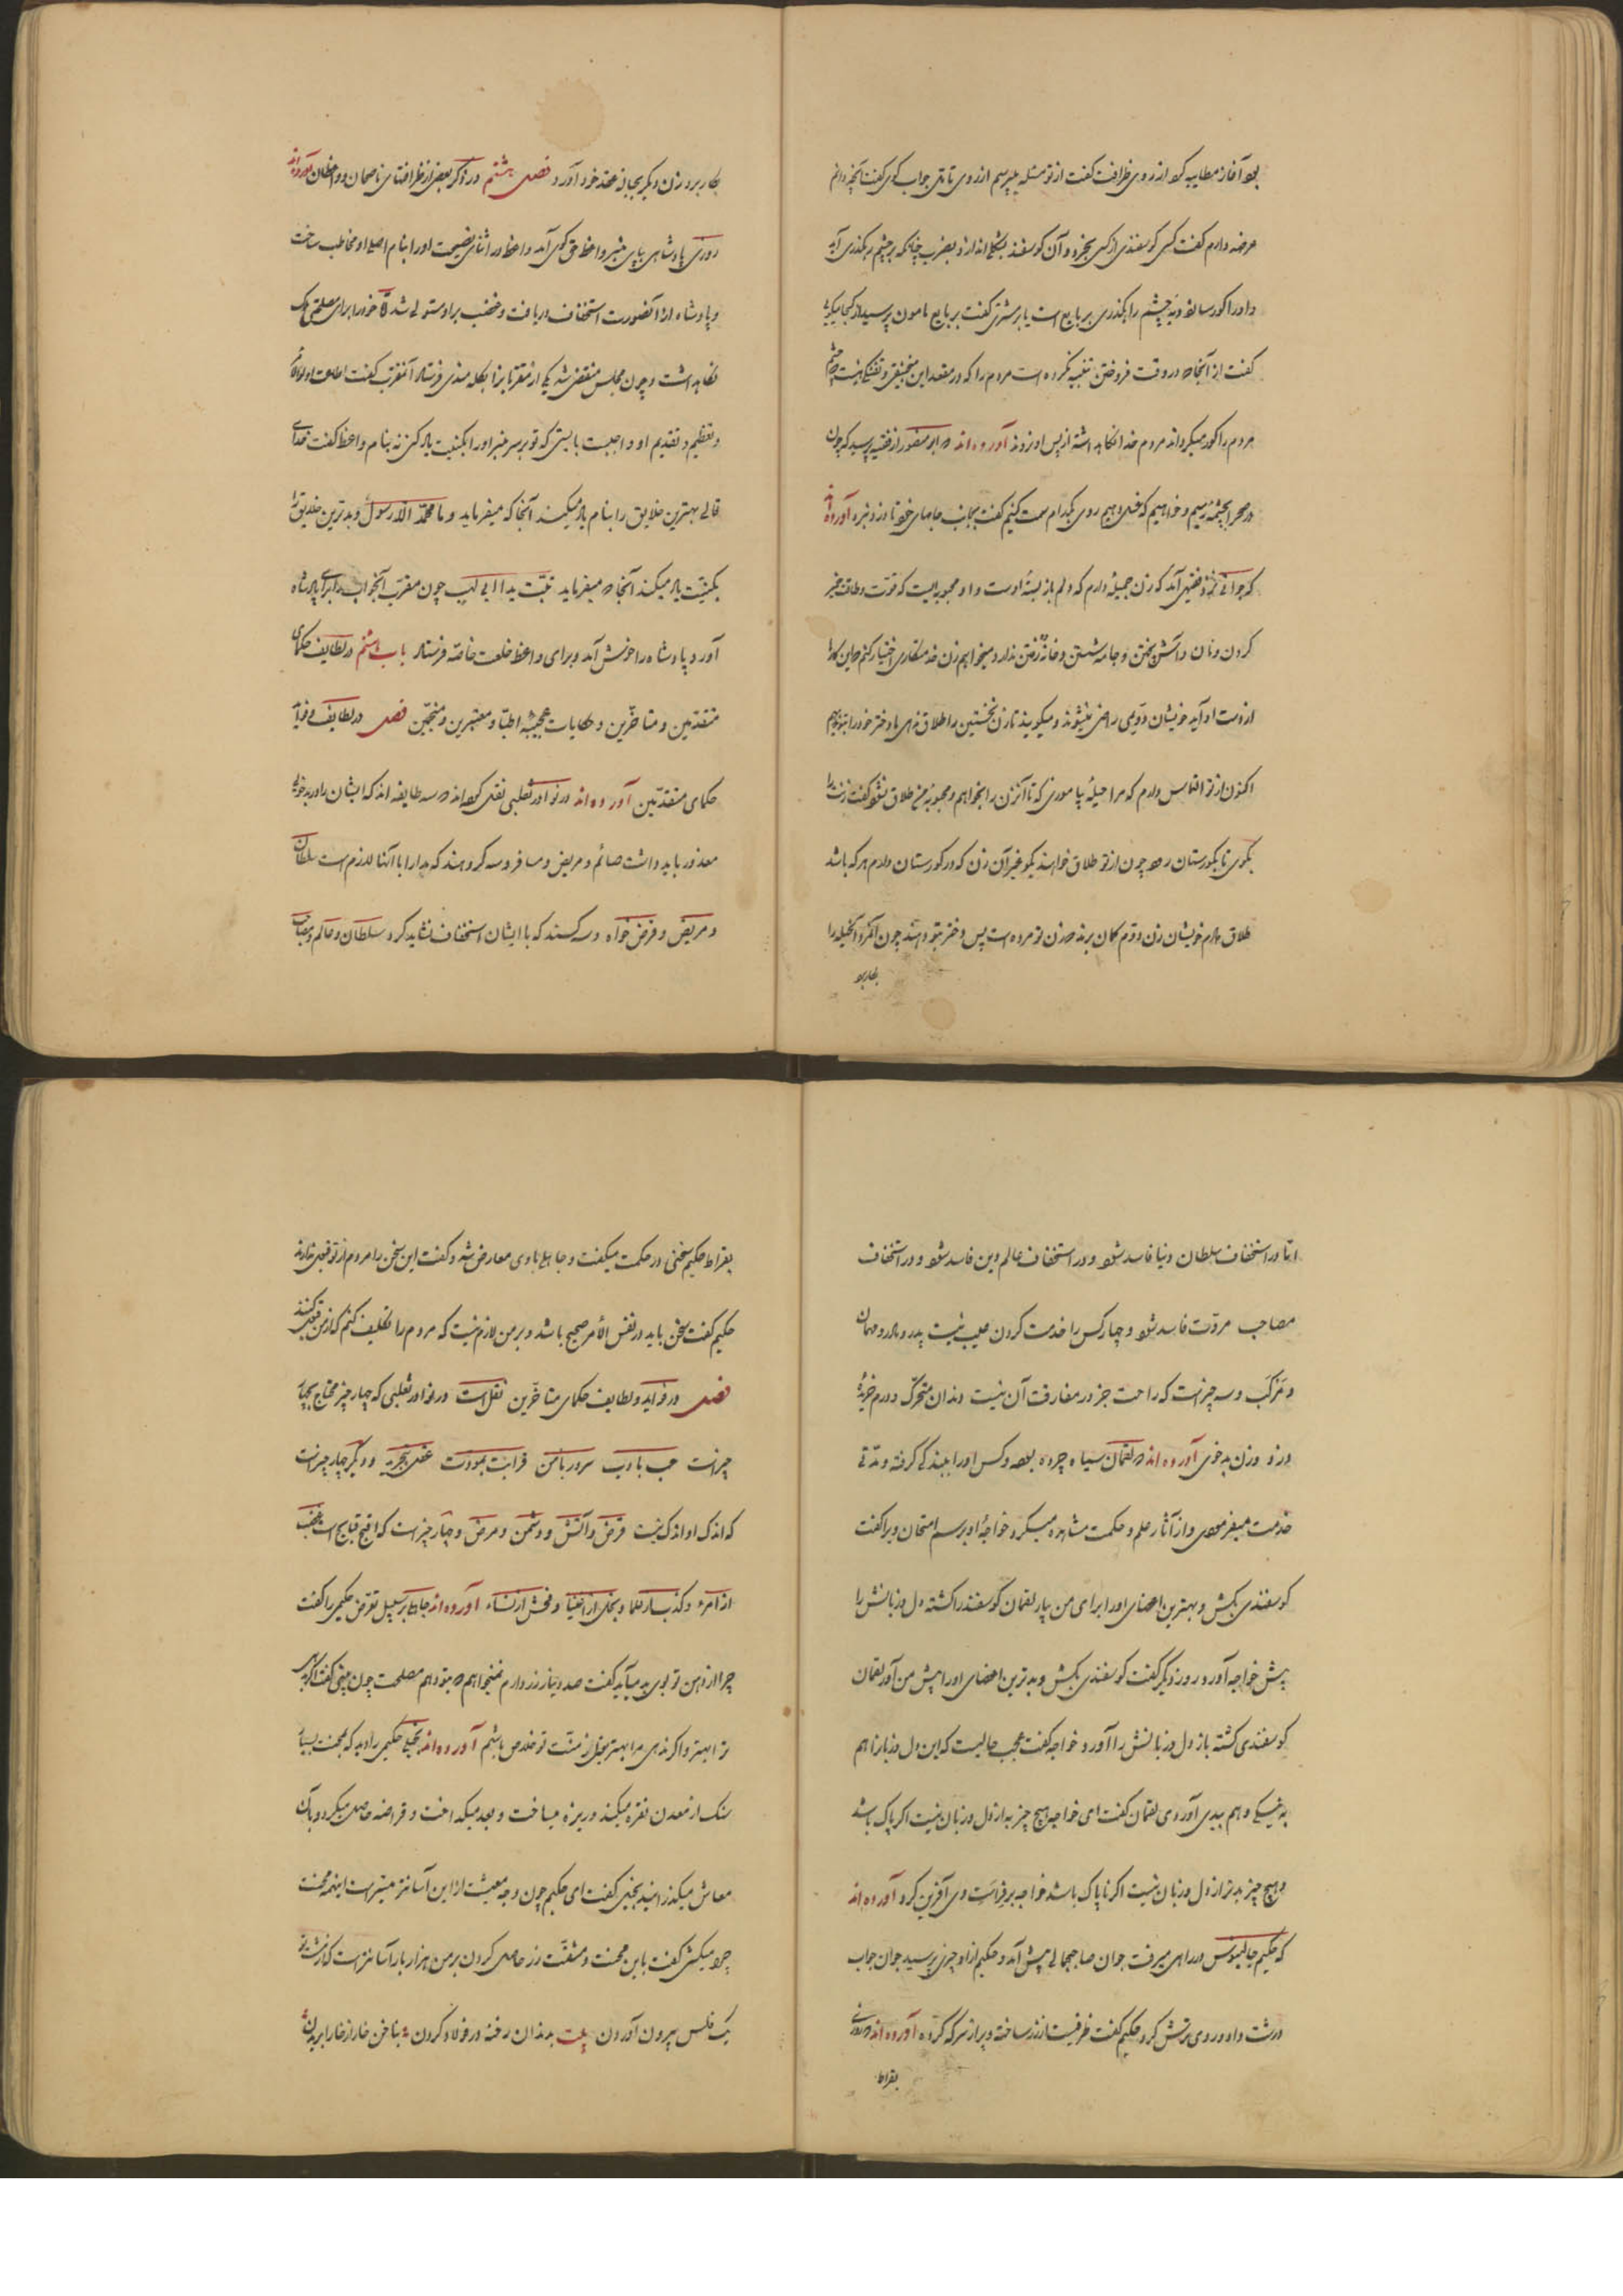 بود آغاز مطایبه کرد از روی ظرافت گفت از تو مسئله بپرسم از روی تأمل جواب گوی گفت آنچه دانم
عرضه دارم گفت کسی گوسفندی از کسی بخرد و آن گوسفند پشکل اندازد بضرب چنانکه بر چشم رهگذری آید
و او را کور سازد دیه چشم راهگذری بر بایع است یا بر مشتری گفت بر بایع مامون پرسید از کجا میگویی
گفت از آنجا که در وقت فروختن تنبیه نکرده است مردم را که در مقعد این منجنیقی و تفنگی هست که چشم
مردم را کور میگرداند مردم خود را نگاهداشته از پس او نروند آورده اند که ابو منصور از فقیه پرسید که چون
در صحرا بچشمه رسیم و خواهیم که غسل دهیم روی بکدام سمت کنیم گفت بجانب جامهای خود تا دزد نبرد آورده اند
که جوانی نزد فقیهی آمد که زن جمیله دارم که دلم باز بسته اوست و او محبوبه ایست که قوت و طاقت خمیر
کردن و نان و آش پختن و جامه شستن و خانه رفتن ندارد میخواهم زن خدمتکاری اختیار کنم که این کارها
از دست او آید خویشان وی راضی نمیشوند و میگویند تا زن نخستین را طلاق ندهی ما دختر خود را بتو ندهیم
اکنون از تو التماس دارم که مرا حیله بیاموزی که تا آنزن را بخواهم و محبوبه من طلاق نشود گفت زنت را
بگوی تا بگورستان رود چون از تو طلاق خواهند بگو غیر آن زن که در گورستان دارم هر که باشد
طلاق دادم خویشان زن دوم گمان برند که زن تو مرده است پس دختر بتو دهند چون آنمرد آنحیله را
بکار برد
بکار برد زن دیگر بحباله عقد خود آورد فصل هشتم در ذکر بعضی از ظرافتهای ناصحان و واعظان آورده اند
روزی پادشاهی بپای منبر واعظ حق گوی آمد واعظ در اثنای نصیحت او را بنام اصلی او مخاطب ساخت
و پادشاه از آنصورت استخفاف دریافت و غضب بر او مستولی شد امّا خود را برای مصلحتی ملک
نگاهداشت و چون مجلس منقضی شد یکی از مقربانرا بگله مندی فرستاد آنمقرب گفت اطاعت اولوالامر
و تعظیم و تقدیم او واجبست بایستی که تو بر سر منبر او را بکنیت یاد کنی نه بنام واعظ گفت خدای
تعالی بهترین خلایق را بنام یاد میکند آنجا که میفرماید و ما محمّد الّا رسول و بدترین خلایق را
بکنیت یاد میکند آنجا که میفرماید تبّت یدا ابی لهب چون مقرب آنجواب برای پادشاه
آورد پادشاه را خوش آمد و برای واعظ خلعت خاصّه فرستاد باب هشتم در لطایف حکمای
متقدمین و متاخّرین و حکایات عجیبه اطبّا و معتبرین و منجّمین فصل در لطایف و فواید
حکمای متقدّمین آورده اند در نوادر ثعلبی نقل کرده اند که سه طایفه اند که ایشان را در بدخویی
معذور باید داشت صائم و مریض و مسافر و سه گروهند که مدارا با آنها لازم است سلطان
و مریض و قرض خواه و سه کسند که با ایشان استخفاف نشاید کرد سلطان و عالم و مصاحب
امّا در استخفاف سلطان دنیا فاسد شود و در استخفاف عالم دین فاسد شود و در استخفاف
مصاحب مروّت فاسد شود و چهار کس را خدمت کردن عیب نیست پدر و مادر و مهمان
و مرکب و سه چیز است که راحت جز در مفارقت آن نیست دندان متحرّک و درم خریده
دزد و زن بدخوی آورده اند که لقمان سیاه چرده بود و کس او را ببندگی گرفته و مدّتی
خدمت میفرمود و از آثار علم و حکمت مشاهده میکرد خواجه او برسم امتحان ویرا گفت
گوسفندی بکش و بهترین اعضای او را برای من بیار لقمان گوسفند را کشته دل و زبانش را
پیش خواجه آورد روز دیگر گفت گوسفندی بکش و بدترین اعضای او را پیش من آور لقمان
گوسفندی کشته باز دل و زبانش را آورد خواجه گفت عجب حالیست که این دل و زبانرا هم
به نیکی و هم ببدی آوردی لقمان گفت ای خواجه هیچ چیز به از دل و زبان نیست اگر پاک باشد
و هیچ چیز بدتر از دل و زبان نیست اگر ناپاک باشد خواجه بر فراست وی آفرین کرد آورده اند
که حکیم جالینوس در راهی میرفت جوان صاحبجمالی پیش آمد و حکیم از او چیزی پرسید جوان جواب
درشت داد و روی ترش کرد حکیم گفت ظرفیست از زر ساخته و پر از سرکه کرده آورده اند که روزی
بقراط
بقراط حکیم سخنی در حکمت میگفت و جاهلی با وی معارض شد و گفت این سخن را مردم از تو قبول ندارند
حکیم گفت سخن باید در نفس الأمر صحیح باشد و بر من لازم نیست که مردم را تکلیف کنم که از من قبول کنند
فصل در فواید و لطایف حکمای متاخّرین نقل است در نوادر ثعلبی که چهار چیز محتاج بچهار
چیز است حسب بادب سرور بامن قرابت بمودت عقل بتجربه و دیگر چهار چیز است
که اندک او اندک نیست قرض و آتش و دشمن و مرض و چهار چیز است که اقبح قبایح است غضب
از امرا و کذب از علما و بخل از اغنیا و فحش از نساء آورده اند جاهلی بر سبیل تعرّض حکیمی را گفت
چرا از دهن تو بوی بد میآید گفت صد دینار زر دارم نمیخواهم که بتو دهم مصلحت چون بینی گفت اگر بدهی
ترا بهتر و اگر ندهی مرا بهتر بجهل از منّت تو خلاص باشم آورده اند بخیلی حکیمی را دید که بمحنت بسیار
سنگ از معدن نقره میکند و ریزه میساخت و بعد میگداخت و قراضه حاصل میکرد و بآن
معاش میگذرانید بخیل گفت ای حکیم چون وجه معیشت از این آسانتر میسّر است اینهمه محنت
چرا میکشی گفت باین محنت و مشقّت زر حاصل کردن بر من هزار بار آسانتر است که از مشت تو
یک فلس بیرون آوردن بیت بدندان رخنه در فولاد کردن بناخن خار از خارا بریدن